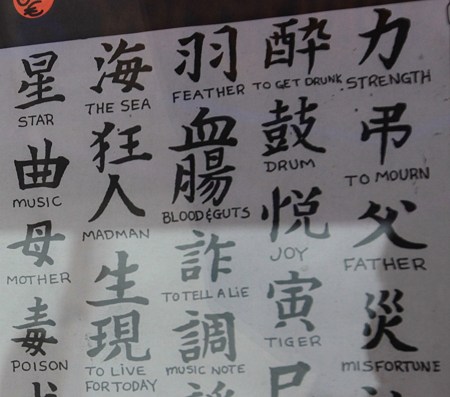 星
STAR
曲
MUSIC
母
MOTHER
毒
POISON
海
THE SEA
狂
人
MADMAN
生
現
TO LIVE
FOR TODAY
羽
FEATHER
血
腸
BLOOD & GUTS
詐
TO TELL A LIE
調
MUSIC NOTE
酔
TO GET DRUNK
鼓
DRUM
悦
JOY
寅
TIGER
力
STRENGTH
弔
TO MOURN
父
FATHER
災
MISFORTUNE